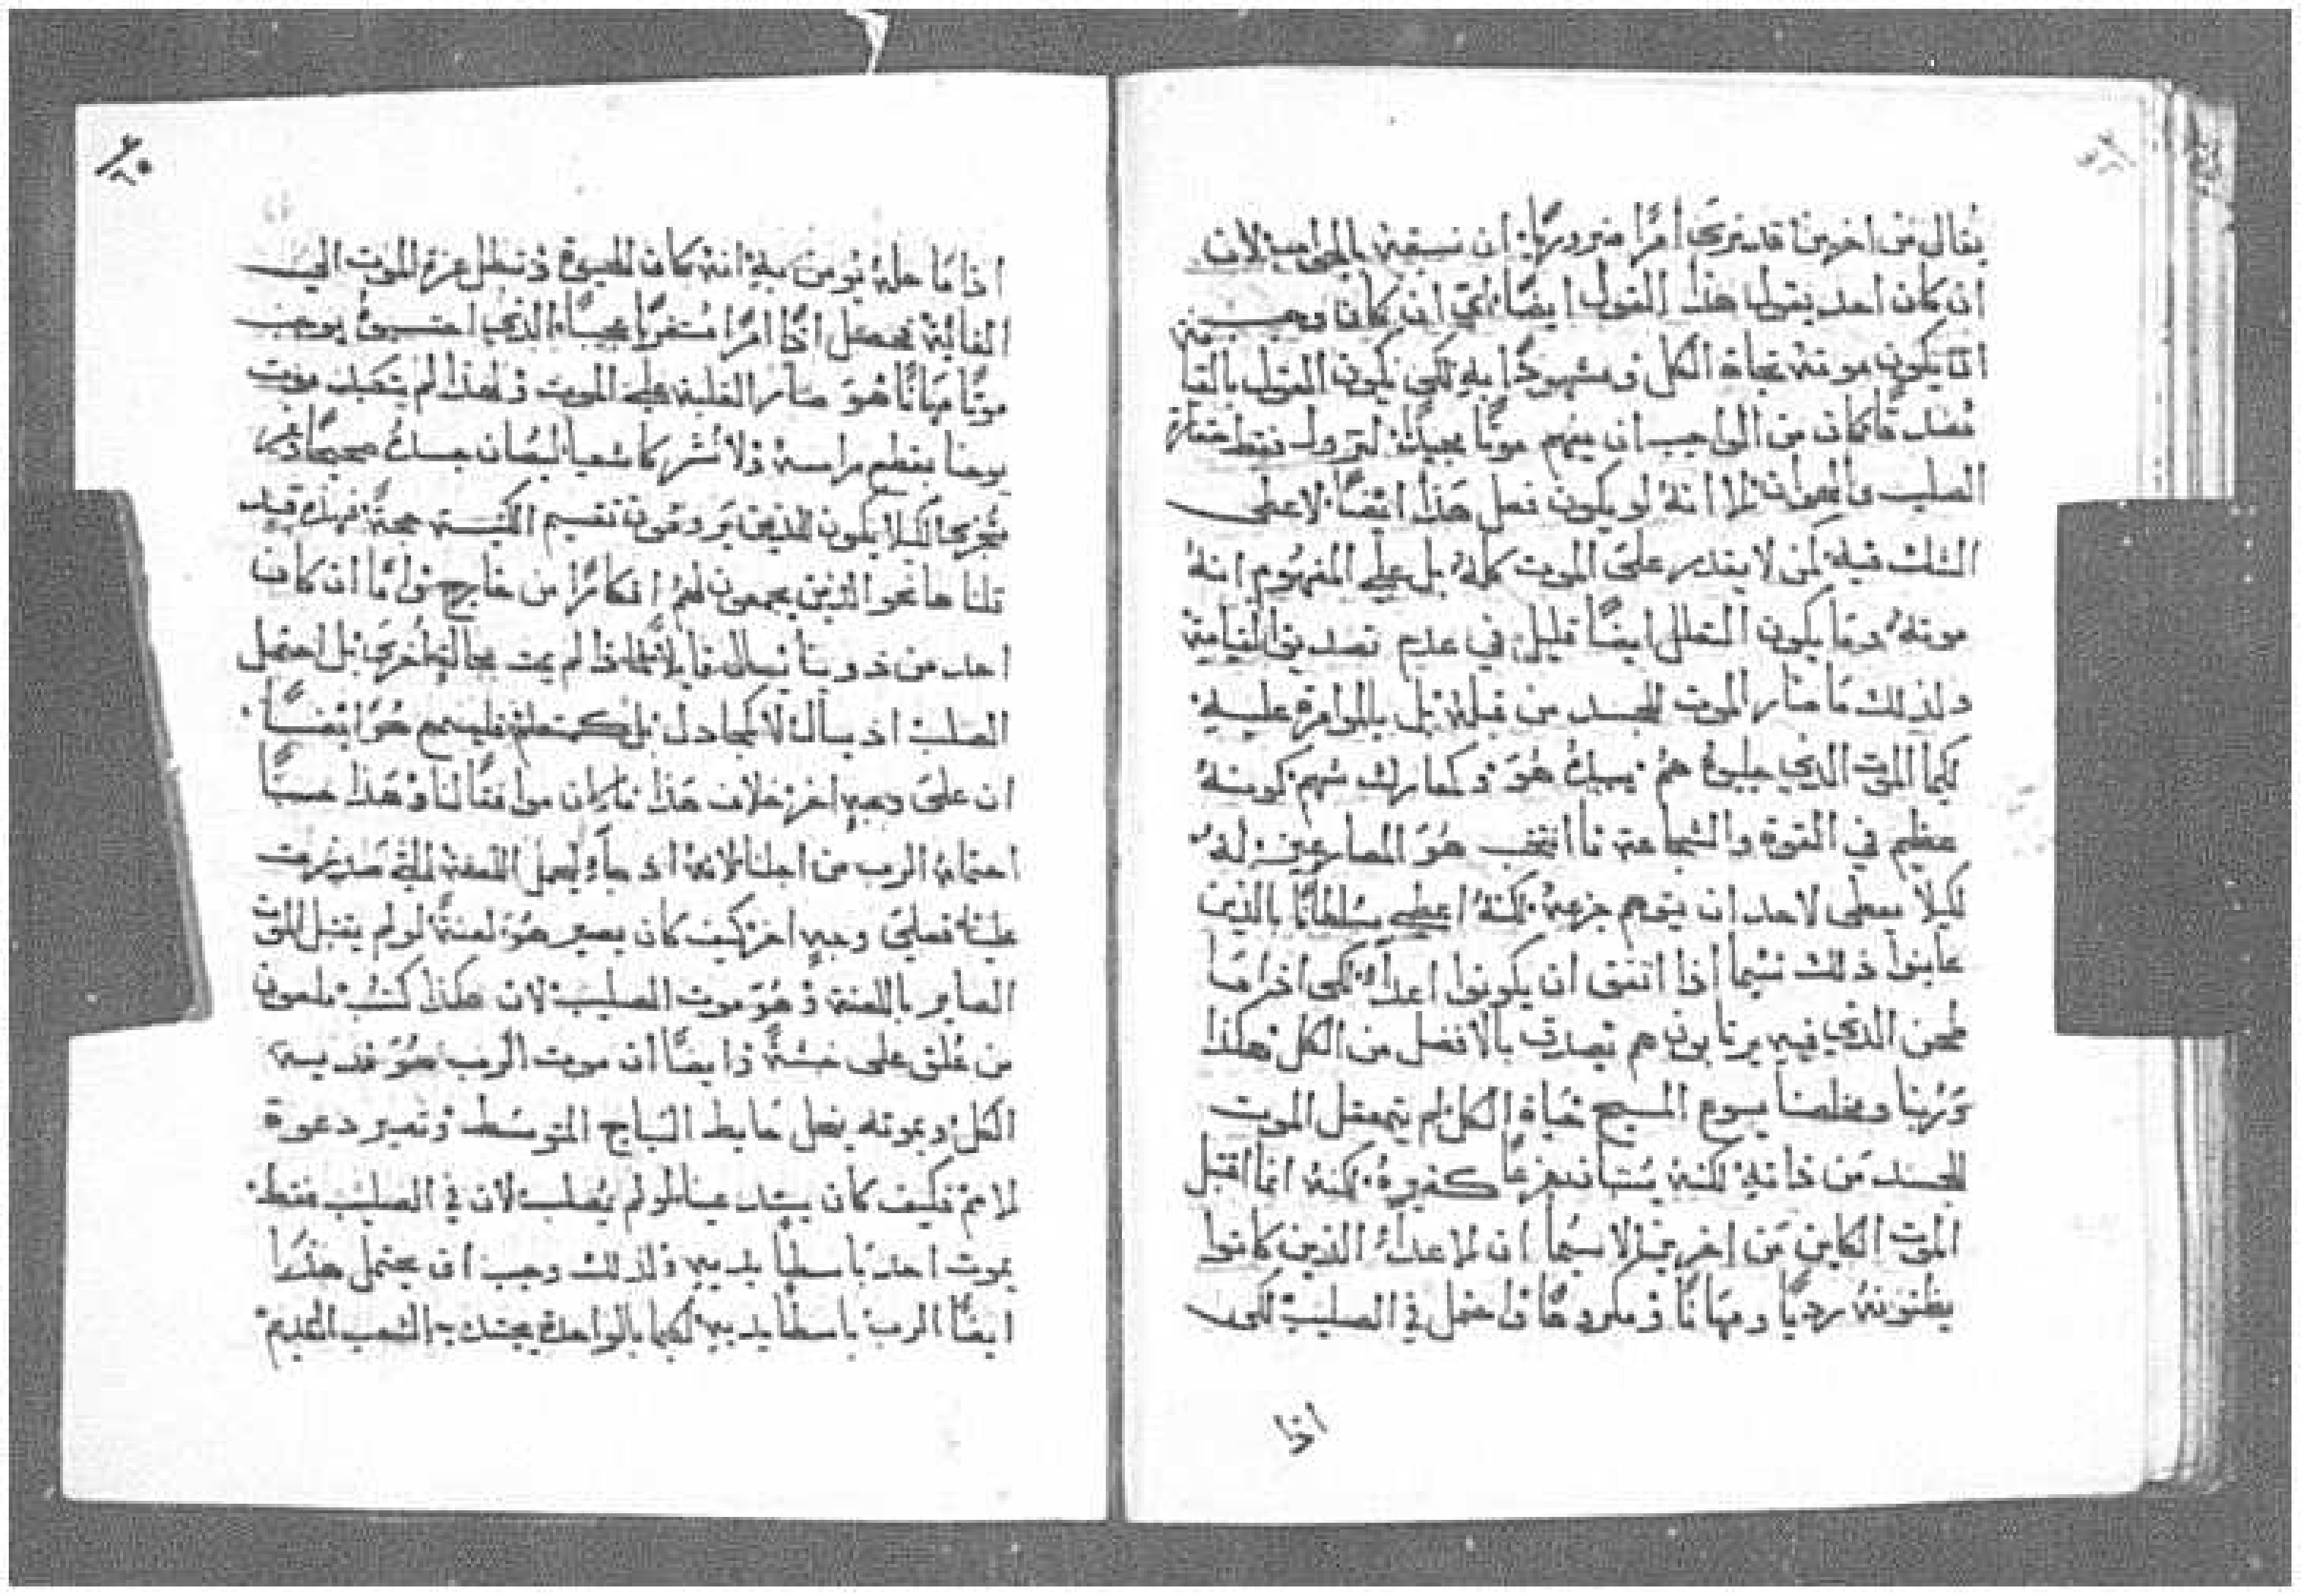 يقال من اخرين قد نرى امرا ضروريا ان نسبقه بالجواب لان
ان كان احد يقول هذا القول ايضا اي ان كان وجب
انما يكون موته تجاه الكل ومشهودا به لكي يكون القول بالقيامة
مصدقا فكان من الواجب ان يفهم موتا مجيدا ليزول فقط حقارة
الصليب والهوان الا انه لو يكون فعل هذا ايضا لاعطى
الشك فيه لمن لا يقدر على الموت كله بل على المفهوم انه
موته وما يكون التعلل ايضا قليل في عدم تصديق القيامة
ولذلك ما صار الموت للجسد من قبله بل بالموامرة عليه
كيما الموت الذي جلبوه هم يبيده هو وكمبارك شهم كونه
عظيم في القوة والشجاعة ما انتخب هو المصارعين له
لكيلا يعطى لاحد ان يتوهم جزعه لكنه اعطى سلطانا بالذين
عاينوا ذلك سيما اذا اتفق ان يكونوا اعداء لكي اذا ما
طحن الذي فيه يرتابون هم تصدق بالافضل من الكل هكذا
وربنا ومخلصنا يسوع المسيح حياة الكل لم يتمعقل الموت
للجسد من ذاته لكنه يستبان فزعا كغيره لكنه انما اقتبل
الموت الكاين من اخرين لا سيما ان الاعداء الذين كانوا
يظنونه رديا ومهانا ومكروها واحتمل في الصليب لكي
اذا
اذا ما حله نومن به انه كان الحيوة وتبطل عزة الموت الى
الغاية فحصل اذا امرا مستغربا عجيبا الذي احتسبوه يوجب
موتا مهانا هو صار الغلبة على الموت ولهذا لم يتكبد موت
يوحنا بقطع راسه ولا نشر كاشعيا ليصان جسده صحيحا غير
متجزي لكيلا يكون للذين يرومون تقسيم الكنيسة حجة فهذا قيل
قلنا ها نحو الذين يجمعون لهم افكارا من خارج واما ان كان
احد من ذوينا نسال قايلا لماذا لم يمت بحالة اخرى بل احتمل
الصلب اذ يسال لا كمجادل بل كمتعلم فليسمع هو ايضا
ان على وجه اخر خلاف هذا ما كان موافقا لنا وهذا حسبا
احتمله الرب من اجلنا لانه اذ جاء ليحمل اللعنة التي صدرت
علينا فعلى وجه اخر كيف كان يصير هو لعنة لو لم يقبل الموت
الصاير باللعنة وهو موت الصليب لان هكذا كتب ملعون
من علق على خشبة وايضا ان موت الرب هو فدية
الكل وبموته يحل حايط السياج المتوسط وتصير دعوة
الامم فكيف كان يستدعينا لو لم يصلب لان في الصليب فقط
يموت احد باسطا يديه ولذلك وجب ان يحتمل هذا
ايضا الرب باسطا يديه لكيما بالواحدة يجتذب الشعب القديم